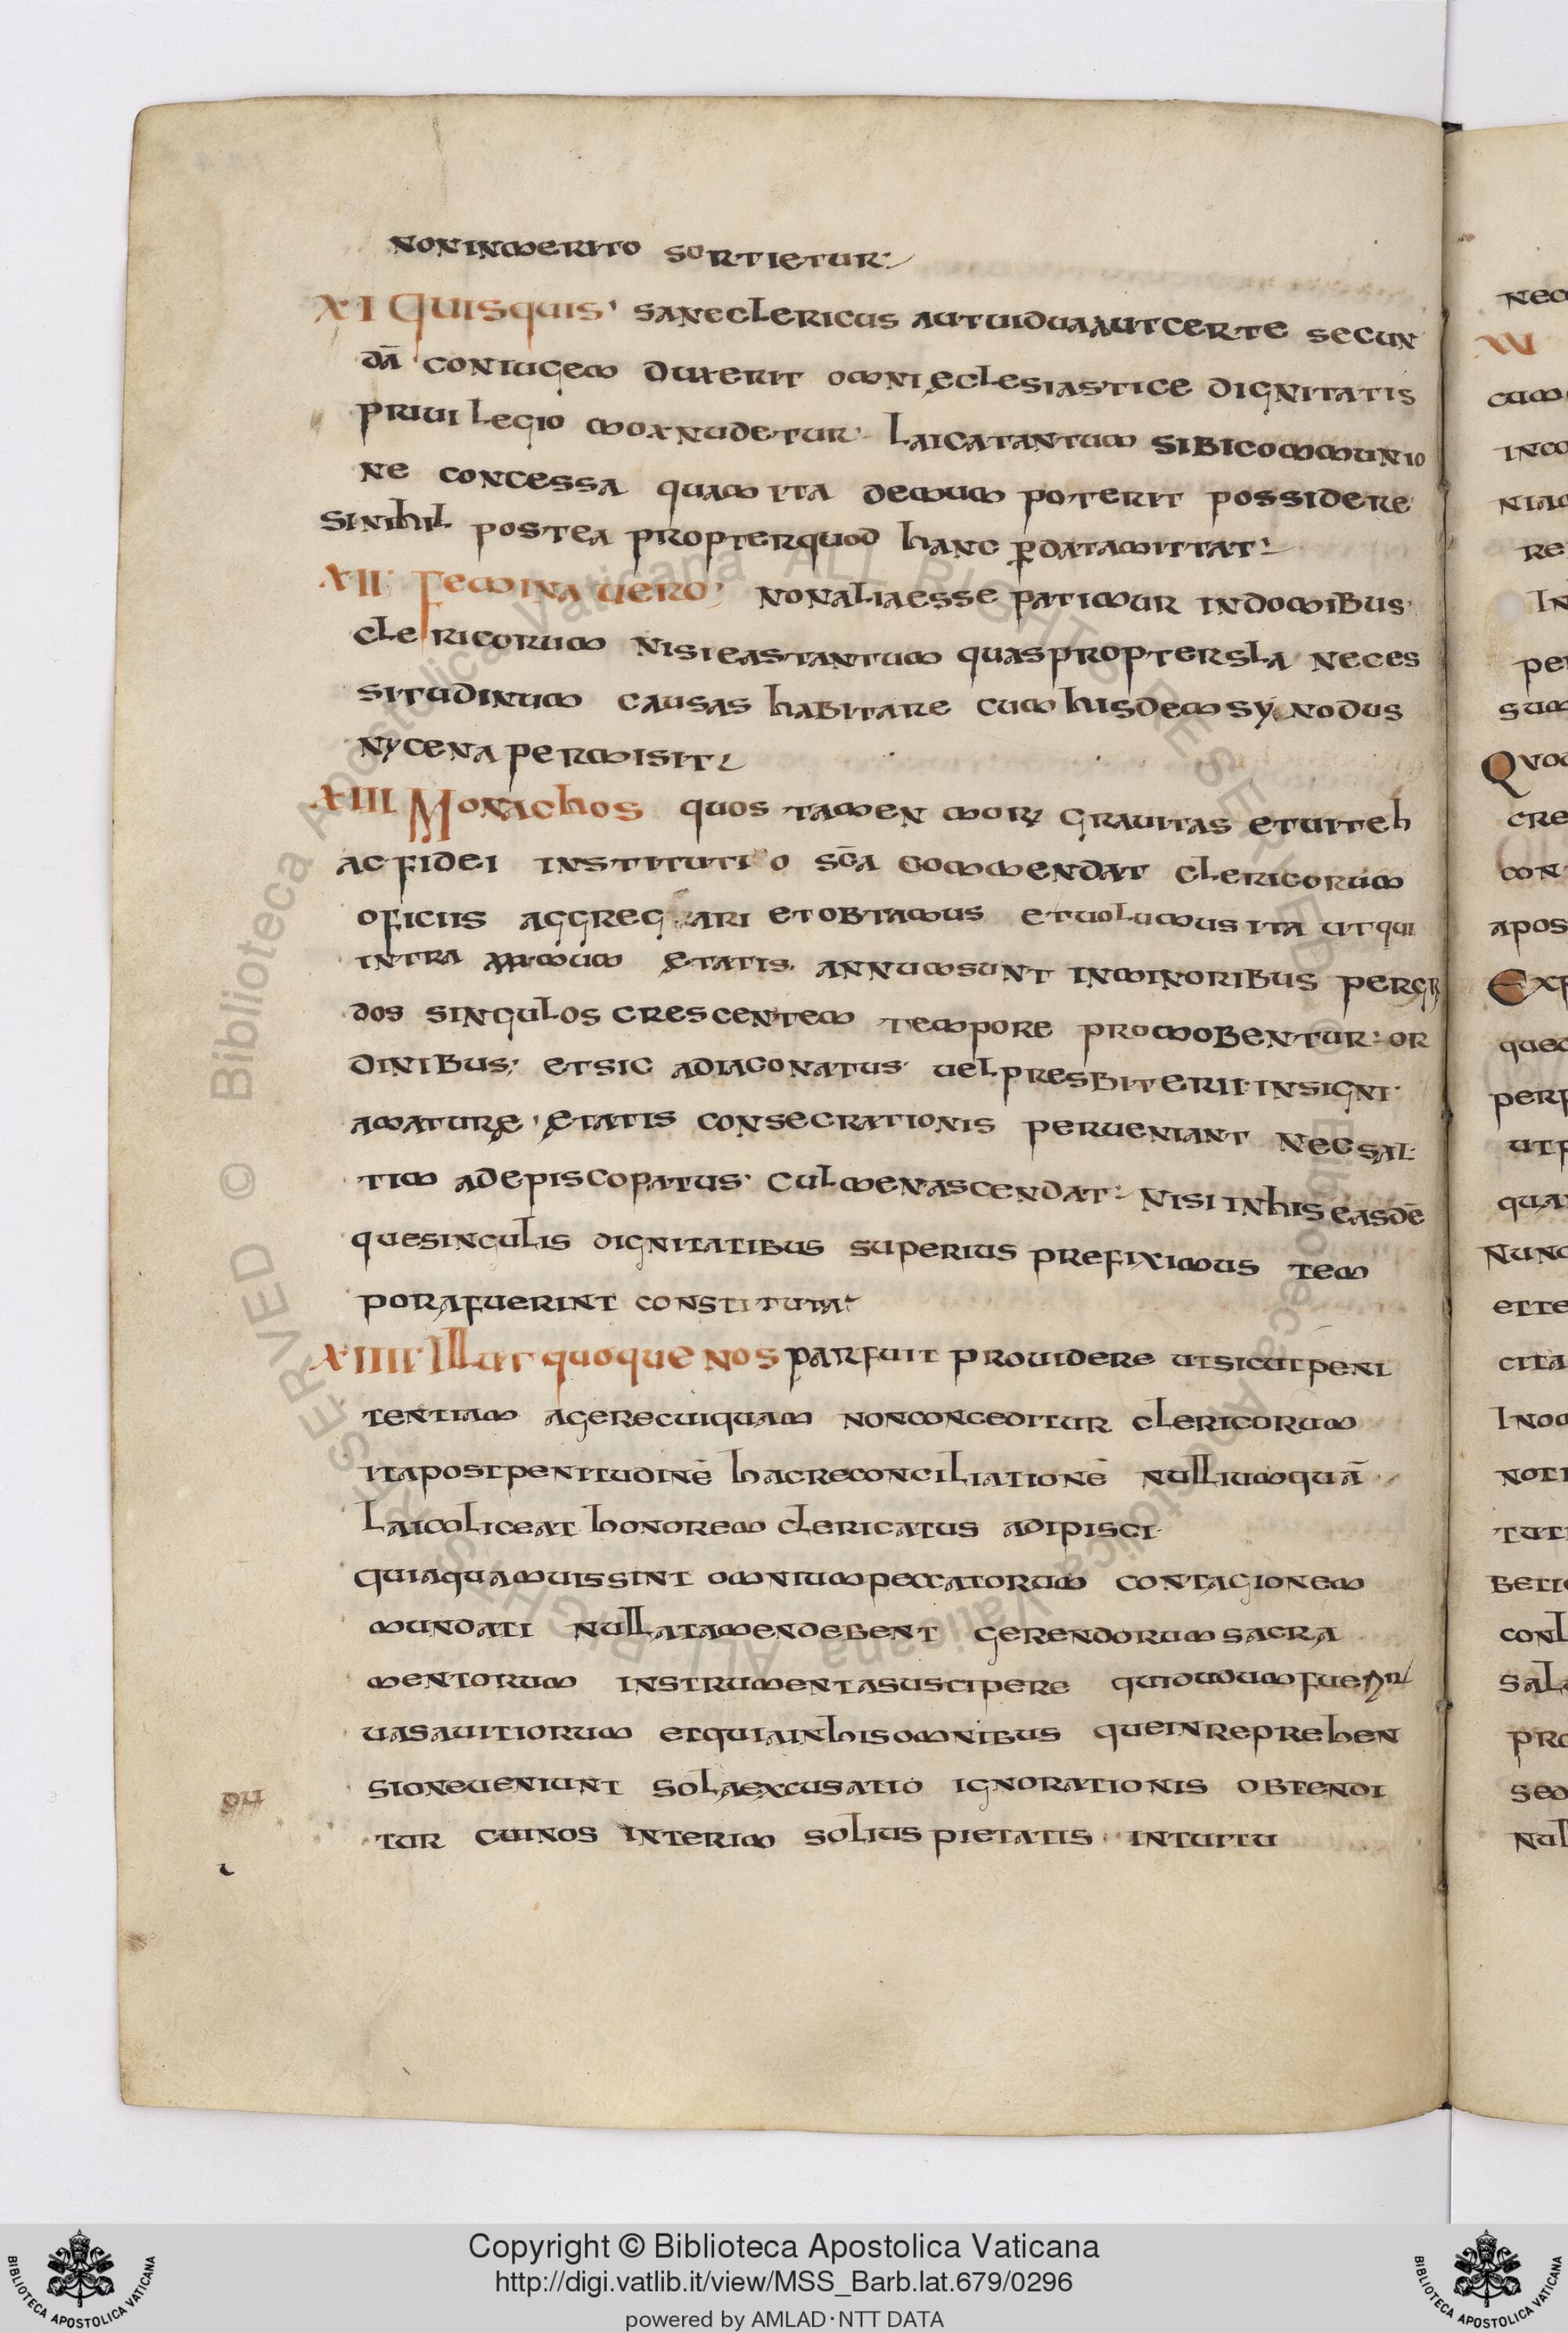 noninmerito sortietur
XI Quisquis saneclericus autuiduamutcerte secun
dā coniugem duxerit omni ęclesiastice dignitatis
priuilegio moxnudetur laicatantum sibicommunio
ne concessa quam ita demum poterit possidere
sinihil postea propterquod hanc ꝑdatamittat
XII Femina uero nonaliaesse patimur indomibus
clericorum nisieastantum quaspropter sla neces
situdinum causas habitare cum hisdem synodus
nycena permisit
XIII Monachos quos tamen grauitas etuite
ac fidei institutio sc̄a commendat clericorum
oficiis aggregari etobtamus etuolumus ita utqui
intra ętatis annumsunt inminoribus per
dos singulos crescentem tempore promobentur or
dinibus etsic adiaconatus uel presbiterii insigni
amature ętatis consecrationis perueniant nec sal
tim adepiscopatus culmenascendat nisi inhis easdē
quesingulis dignitatibus superius prefiximus tem
porafuerint constituta
XIIII Illut quoque nos parfuit prouidere utsicutpeni
tentiam agerecuiquam nonconceditur clericorum
itapostpenitudinē hacreconciliationē nulliumquā
laicoliceat honorem clericatus adipisci
quiaquamuissint omniumpeccatorum contagionem
mundati nullatamendebent gerendorumsacra
mentorum instrumentasuscipere quidudumfue
uasauitiorum etquiainhisomnibus queinreprehen
sioneueniunt solaexcusatio ignorationis obtendi
tur cuinos interim solius pietatis intuitu
Copyright © Biblioteca Apostolica Vaticana
http://digi.vatlib.it/view/MSS_Barb.lat.679/0296
powered by AMLAD·NTT DATA
BIBLIOTECA APOSTOLICA VATICANA
BIBLIOTECA APOSTOLICA VATICANA